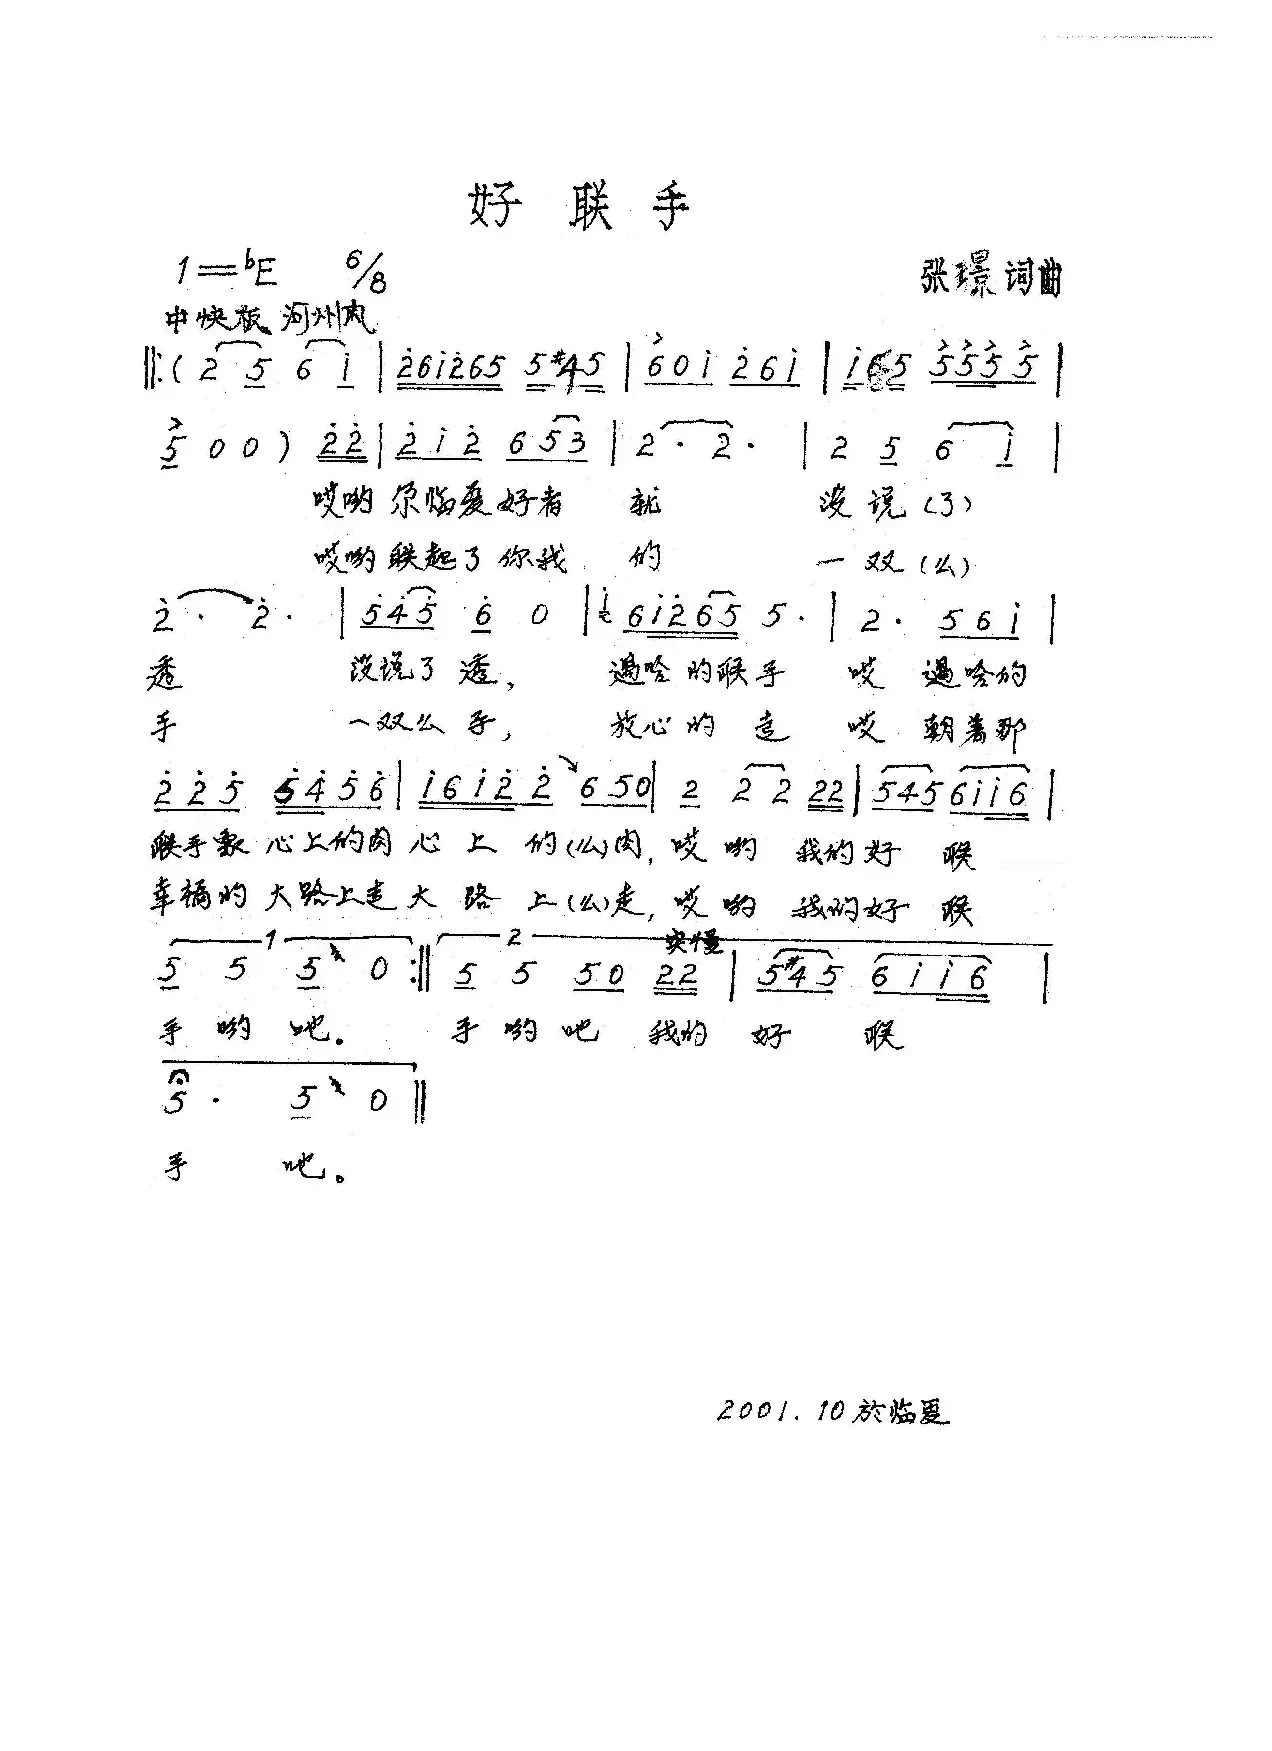 好联手
1=♭E 6/8 张璟词曲
中快板 河州风
‖:( 2 5 6 i | 2̇6i2̇65 5#45 | 60i 2̇6i | i65 5555 |
5 0 0 ) 2̇2̇ | 2̇ i 2̇ 6 5 3 | 2 · 2 · | 2 5 6 i |
哎哟尕临夏好者 就 没说(了)
哎哟联起了你我 的 一双(么)
2̇ · 2̇ · | 5̇4̇5̇ 6̇ 0 | 6i2̇65 5 · | 2 · 5 6 i |
透 没说了透, 遇啥的联手 哎 遇啥的
手 一双么手, 放心的走 哎 朝着那
2̇ 2̇ 5̇ 5̇ 4̇ 5̇ 6̇ | i 6 i 2̇ 2̇ 6 5 0 | 2 2 2 22 | 545 6ii6 |
联手象心上的肉心上的(么)肉,哎哟 我的好 联
幸福的大路上走大路上(么)走,哎哟 我的好 联
1 2 突慢
5 5 5 0 :‖ 5 5 50 22 | 5#45 6 i i 6 |
手哟吔。 手哟吔 我的好 联
5 · 5 0 ‖
手 吔。
2001.10於临夏